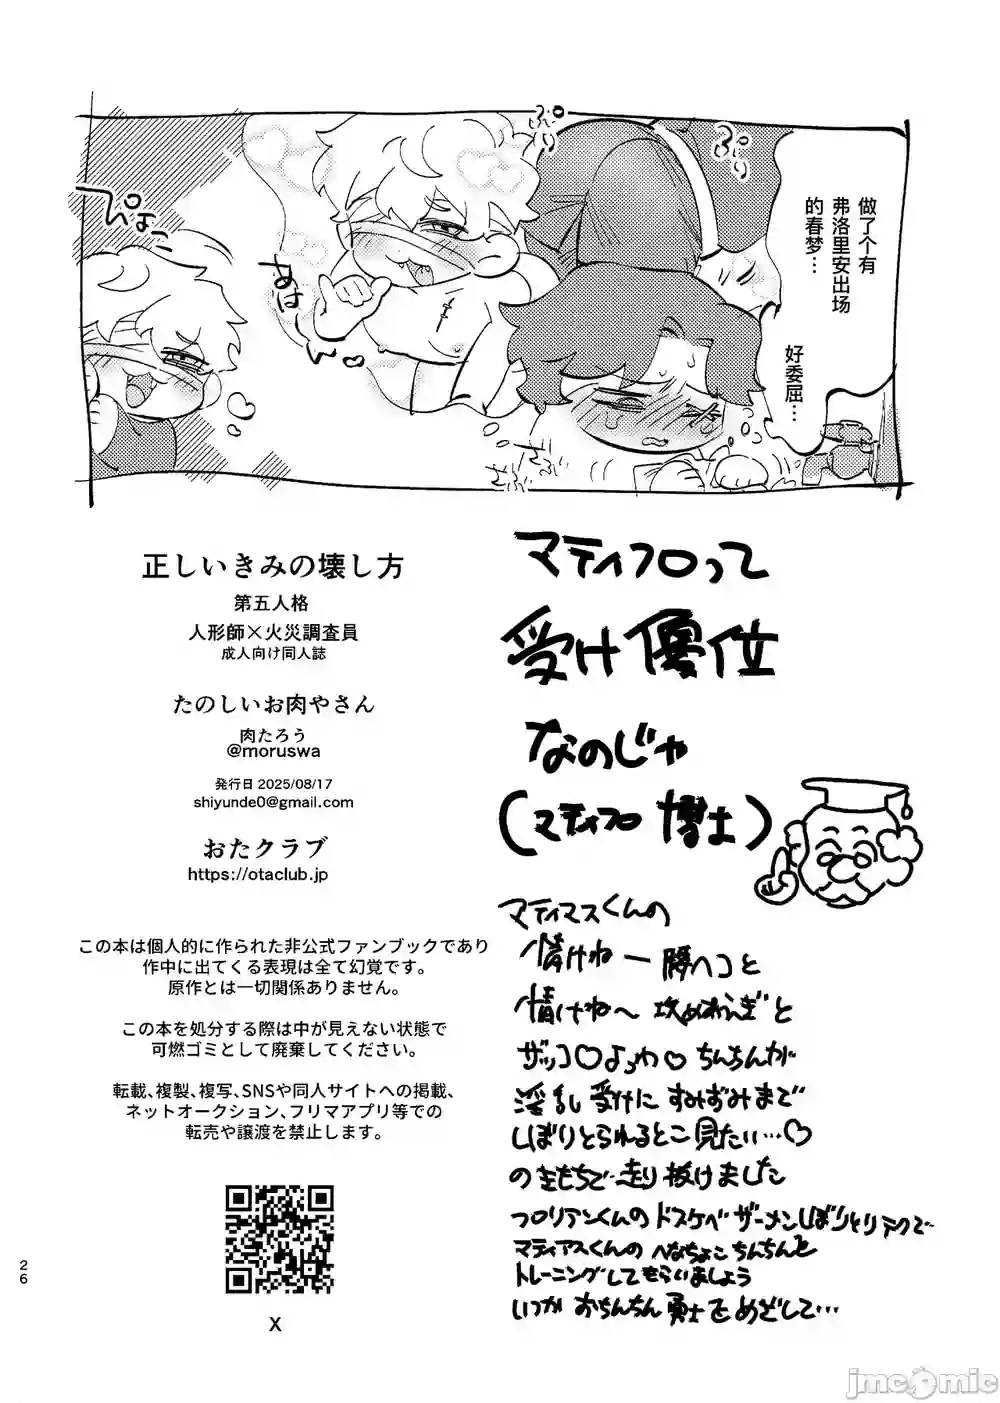 做了个有
弗洛里安出场
的春梦…
好委屈…
ぴょこっ
あはっ
正しいきみの壊し方
第五人格
人形師×火災調査員
成人向け同人誌
たのしいお肉やさん
肉たろう
@moruswa
発行日 2025/08/17
shiyunde0@gmail.com
おたクラブ
https://otaclub.jp
この本は個人的に作られた非公式ファンブックであり
作中に出てくる表現は全て幻覚です。
原作とは一切関係ありません。
この本を処分する際は中が見えない状態で
可燃ゴミとして廃棄してください。
転載、複製、複写、SNSや同人サイトへの掲載、
ネットオークション、フリマアプリ等での
転売や譲渡を禁止します。
X
26
マティフロって
受け優位
なのじゃ
(マティフロ 博士)
マティアスくんの
情けねー腰ヘコと
情けね〜攻めあえぎと
ザッコ♡よろわ♡ちんちんが
淫乱受けにすみずみまで
しぼりとられるとこ見たい…♡
のきもちで走り抜けました
フロリアンくんのドスケベザーメンしぼりとりテクで
マティアスくんのへなちょこちんちんを
トレーニングしてもらいましょう
いつかおちんちん勇士をめざして…
jmcomic